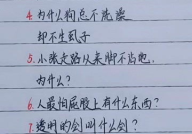 4.为什么狗总不洗澡
却不生虱子
5.小张走路从来脚不沾地,
为什么?
6.人最怕屁股上有什么东西?
7.透明的剑叫什么剑?